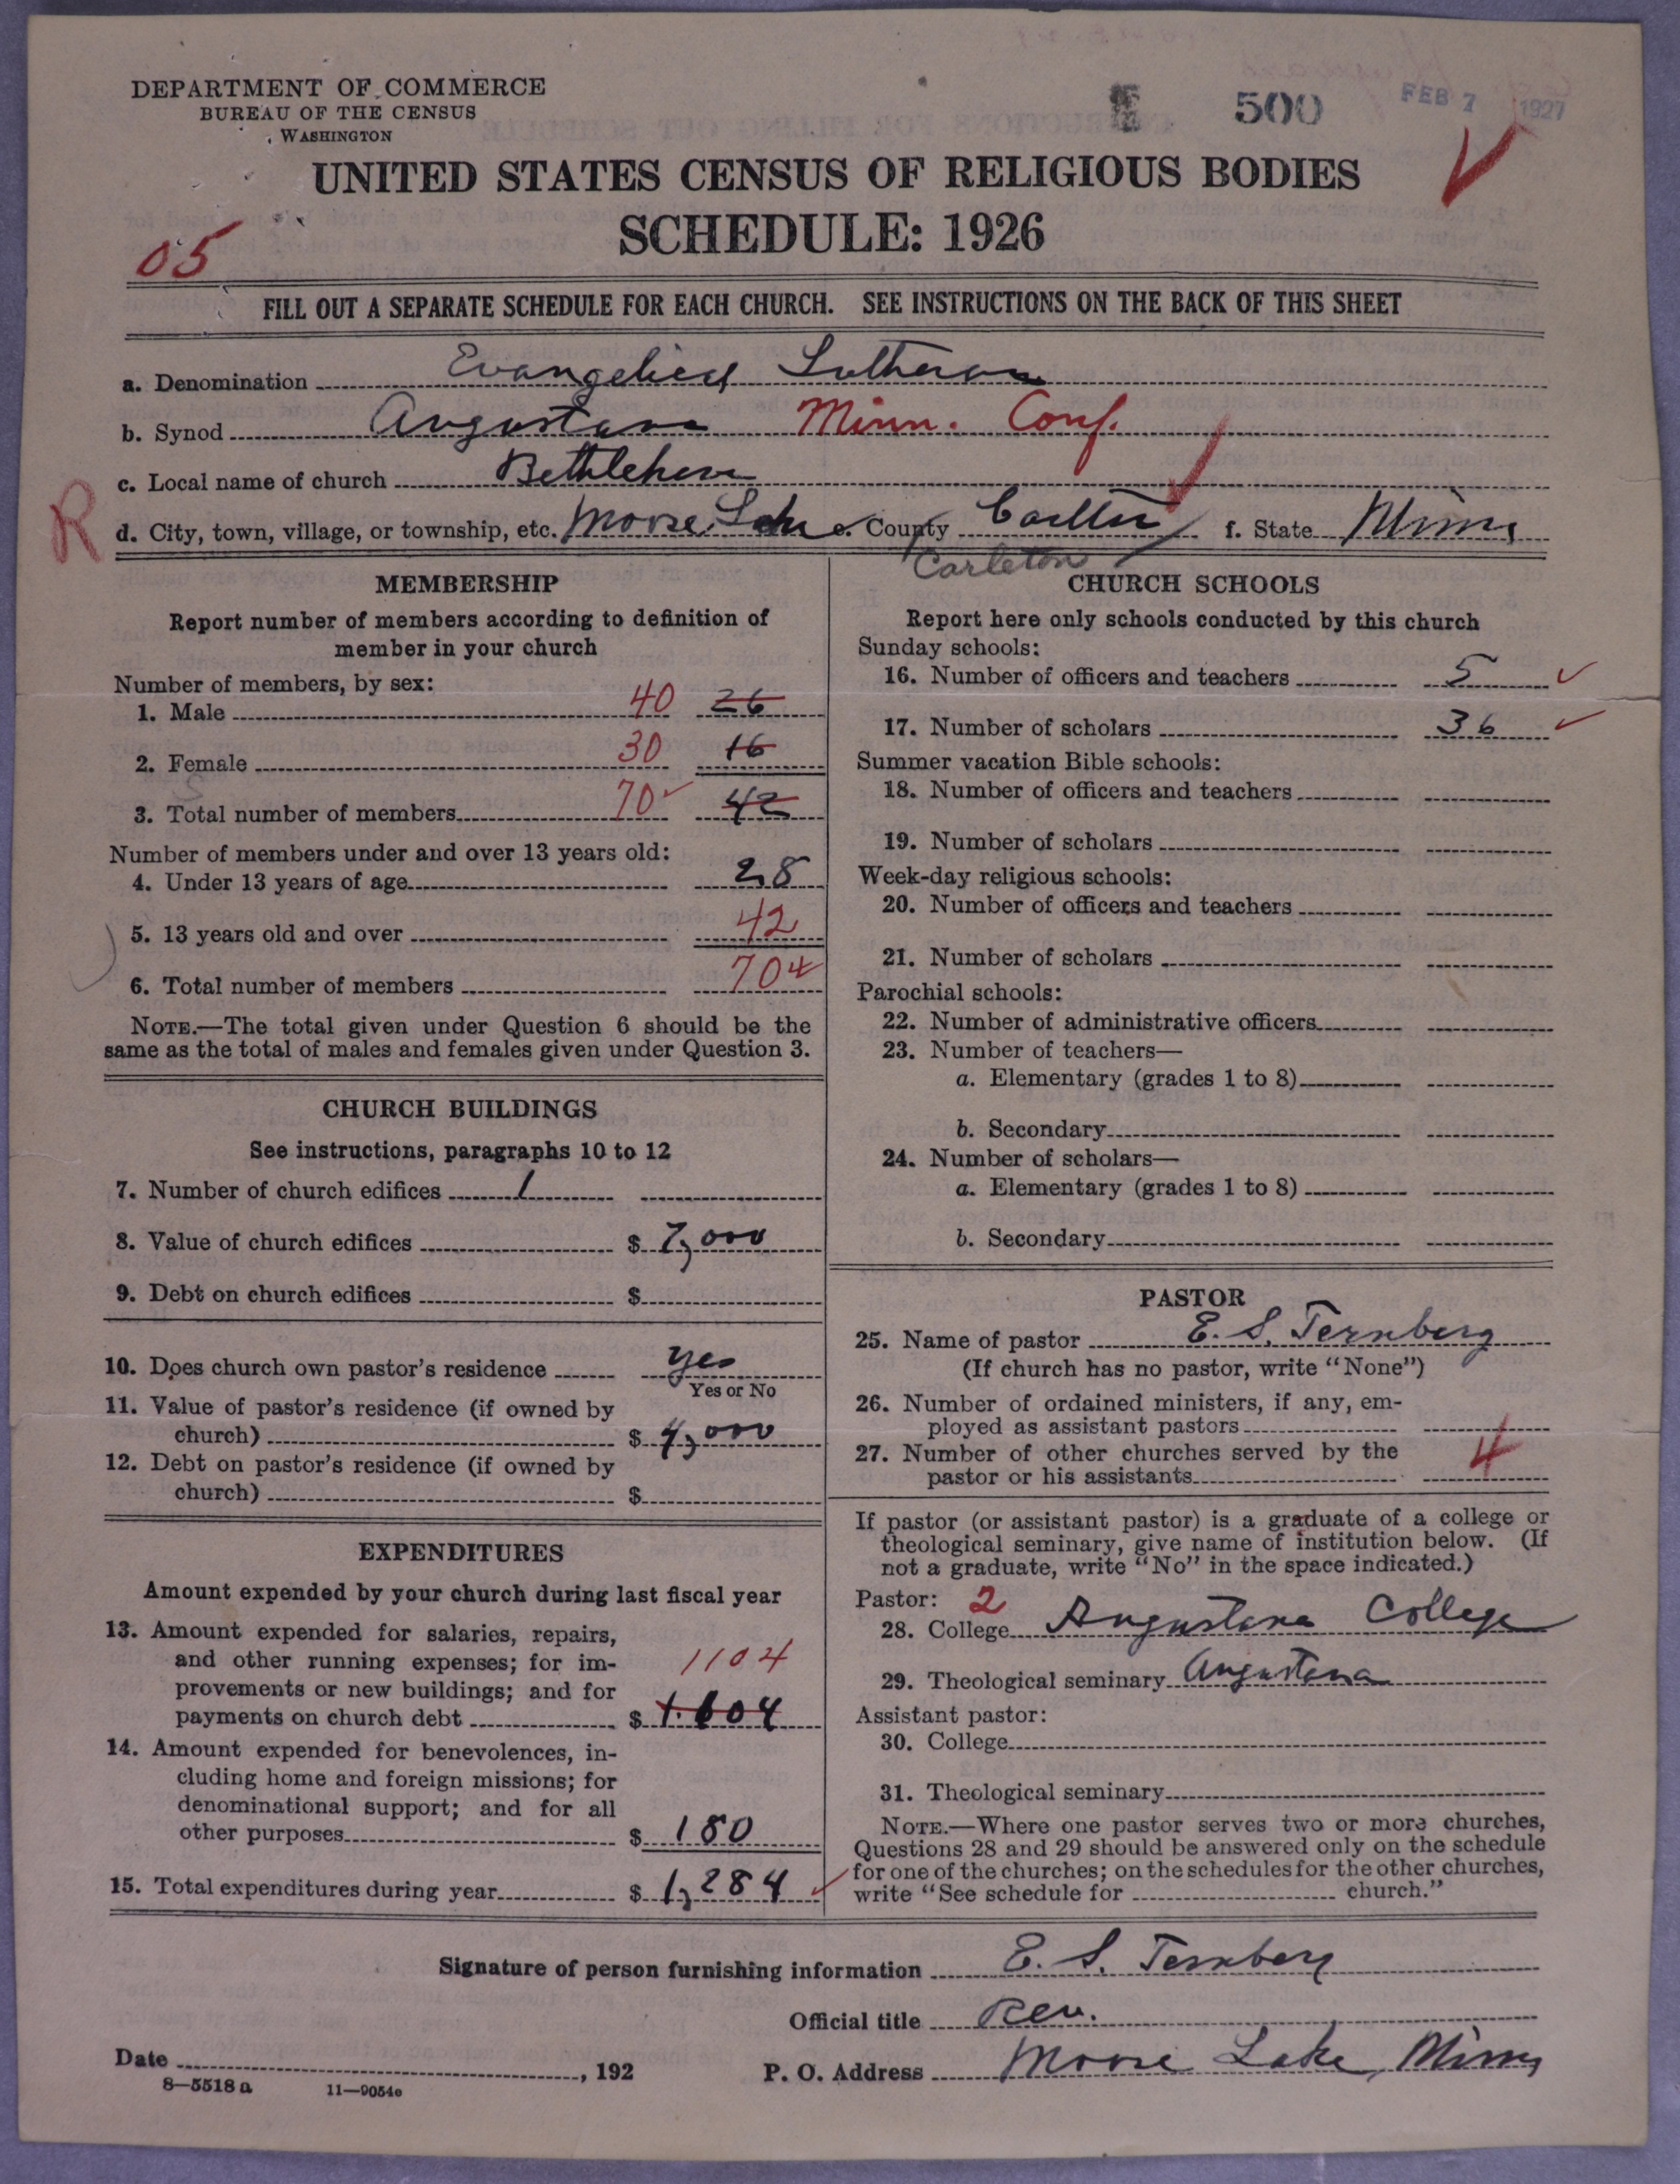 DEPARTMENT OF COMMERCE
BUREAU OF THE CENSUS
WASHINGTON
500
FEB 7 1927
UNITED STATES CENSUS OF RELIGIOUS BODIES
SCHEDULE: 1926
05
FILL OUT A SEPARATE SCHEDULE FOR EACH CHURCH. SEE INSTRUCTIONS ON THE BACK OF THIS SHEET
a. Denomination Evangelical Lutheran
b. Synod Augustana Minn. Conf.
c. Local name of church Bethlehem
R
d. City, town, village, or township, etc. Moose Lake e. County Carlton f. State Minn
Carleton
MEMBERSHIP
Report number of members according to definition of
member in your church
Number of members, by sex:
1. Male 40 26
2. Female 30 16
3. Total number of members 70 42
Number of members under and over 13 years old:
4. Under 13 years of age 28
5. 13 years old and over 42
6. Total number of members 70
NOTE.—The total given under Question 6 should be the
same as the total of males and females given under Question 3.
CHURCH BUILDINGS
See instructions, paragraphs 10 to 12
7. Number of church edifices 1
8. Value of church edifices $ 7,000
9. Debt on church edifices $
10. Does church own pastor's residence yes
Yes or No
11. Value of pastor's residence (if owned by
church) $ 4,000
12. Debt on pastor's residence (if owned by
church) $
EXPENDITURES
Amount expended by your church during last fiscal year
13. Amount expended for salaries, repairs,
and other running expenses; for im-
1104
provements or new buildings; and for
payments on church debt $ 1.604
14. Amount expended for benevolences, in-
cluding home and foreign missions; for
denominational support; and for all
other purposes $ 180
15. Total expenditures during year $ 1,284
CHURCH SCHOOLS
Report here only schools conducted by this church
Sunday schools:
16. Number of officers and teachers 5
17. Number of scholars 36
Summer vacation Bible schools:
18. Number of officers and teachers
19. Number of scholars
Week-day religious schools:
20. Number of officers and teachers
21. Number of scholars
Parochial schools:
22. Number of administrative officers
23. Number of teachers—
a. Elementary (grades 1 to 8)
b. Secondary
24. Number of scholars—
a. Elementary (grades 1 to 8)
b. Secondary
PASTOR
25. Name of pastor E. S. Ternberg
(If church has no pastor, write "None")
26. Number of ordained ministers, if any, em-
ployed as assistant pastors
27. Number of other churches served by the
pastor or his assistants 4
If pastor (or assistant pastor) is a graduate of a college or
theological seminary, give name of institution below. (If
not a graduate, write "No" in the space indicated.)
Pastor: 2
28. College Augustana College
29. Theological seminary Augustana
Assistant pastor:
30. College
31. Theological seminary
NOTE.—Where one pastor serves two or more churches,
Questions 28 and 29 should be answered only on the schedule
for one of the churches; on the schedules for the other churches,
write "See schedule for church."
Signature of person furnishing information E. S. Ternberg
Official title Rev.
Date , 192
P. O. Address Moose Lake, Minn
8—5518 a 11—9054e